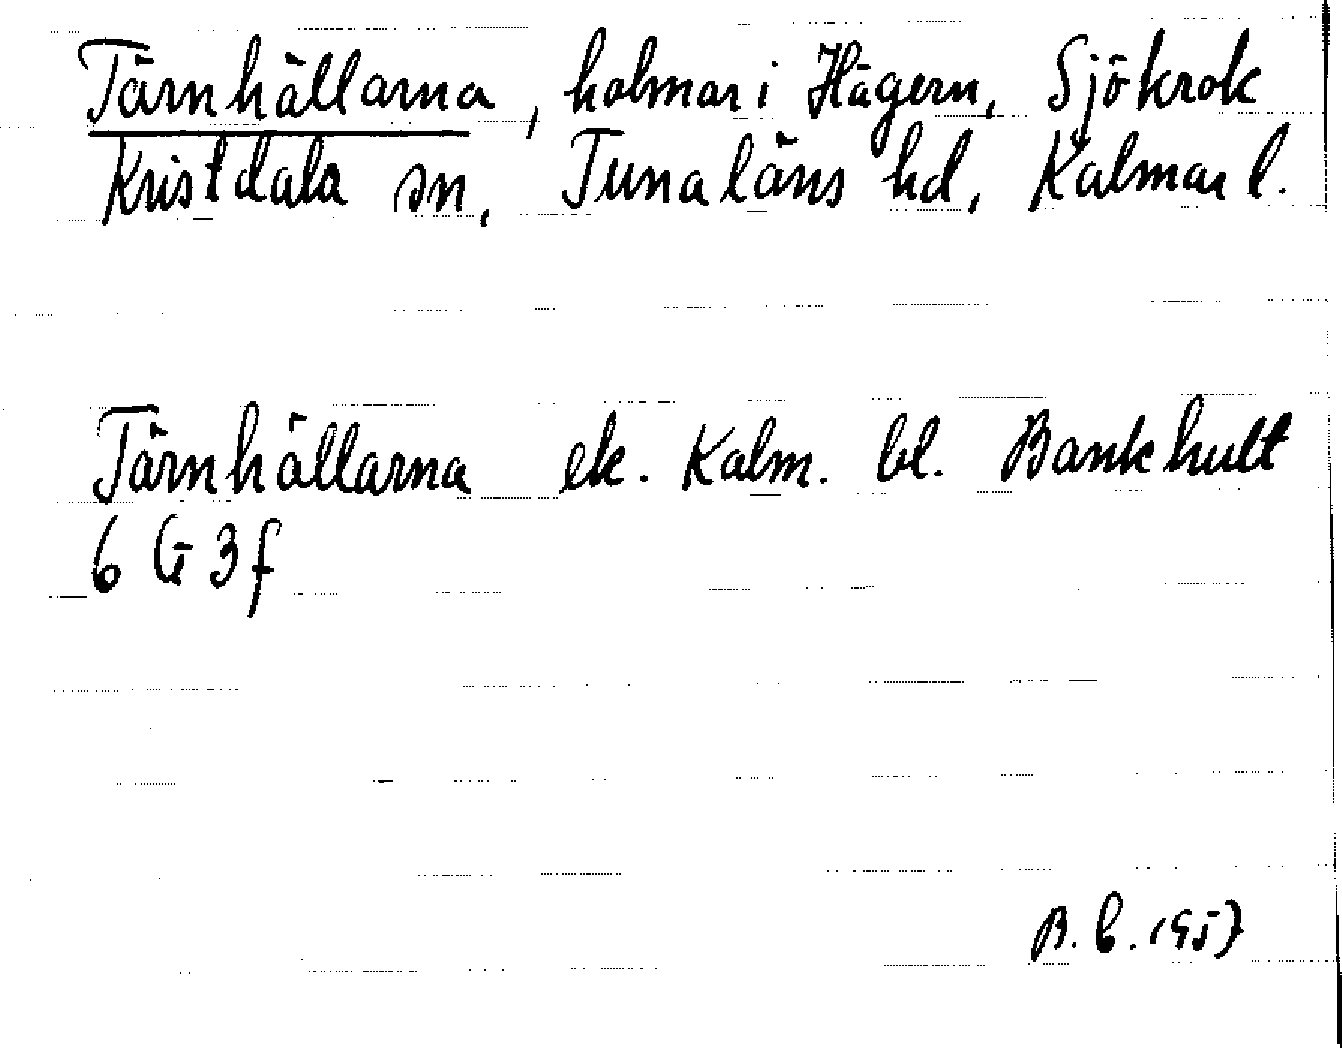 Tärnhällarna, holmar i Hägern, Sjökrok
Kristdala sn, Tunaläns hd, Kalmar l.
Tärnhällarna ek. Kalm. bl. Bankhult
6 G 3f
B. L. 1957